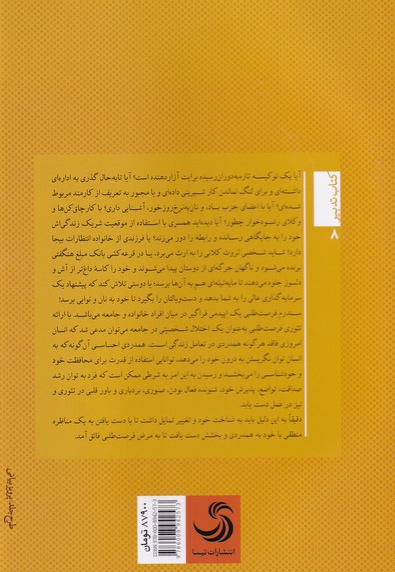 کتاب تدبیر
۸
آیا یک نوکیسه تازه‌به‌دوران‌رسیده برایت آزاردهنده است؟ آیا تا‌به‌حال گذری به اداره‌ای
داشته‌ای و برای لنگ نماندن کار شیرینی داده‌ای و یا مجبور به تعریف از کارمند مربوط
شده‌ای؟ آیا با اعضای حزب باد، و نان‌به‌نرخ‌روزخور، آشنایی داری؟ با کارچاق‌کن‌ها و
وکلای رشوه‌خوار چطور؟ آیا دیده‌اید همسری با استفاده از موقعیت شریک زندگی‌اش
خود را به جایگاهی رسانده و رابطه را دور می‌زند؟ یا فرزندی از خانواده انتظارات بیجا
دارد؟ شاید شخصی ثروت کلانی را به ارث می‌برد، یا در قرعه‌کشی بانک مبلغ هنگفتی
برنده می‌شود و ناگهان جرگه‌ای از دوستان پیدا می‌شوند و خود را کاسهٔ داغ‌تر از آش و
دلسوز جلوه می‌دهند تا مابه‌تیله‌ای هم به آن‌ها برسد؛ یا دوستی تلاش کند که پیشنهاد یک
سرمایه‌گذاری عالی را به شما بدهد و دست‌وبالتان را بگیرد تا خود به نان و نوایی برسد!
سندرم فرصت‌طلبی یک اپیدمی فراگیر در میان افراد خانواده و جامعه می‌باشد. با ارائه
تئوری فرصت‌طلبی به‌عنوان یک اختلال شخصیتی در جامعه می‌توان مدعی شد که انسان
امروزی فاقد هرگونه همدردی در تعامل زندگی است. همدردی احساسی آن‌گونه‌که به
انسان توان نگریستن به درون خود را می‌دهد، توانایی استفاده از قدرت برای محافظت خود
و خودشناسی را می‌بخشد و رسیدن به این امر به شرطی ممکن است که فرد به توان رشد
صداقت، تواضع، پذیرش خود، شنونده فعال بودن، صبوری، بردباری و باور قلبی در تئوری و
نیز در عمل دست یابد.
دقیقاً به این دلیل باید به شناخت خود و تغییر تمایل داشت تا با دست یافتن به یک مناظره
منطقی با خود به همدردی و بخشش دست یافت تا به مرض فرصت‌طلبی فائق آمد.
طرح جلد: پرویز بیانی
۸۷۹۰۰ تومان
انتشارات تیسا